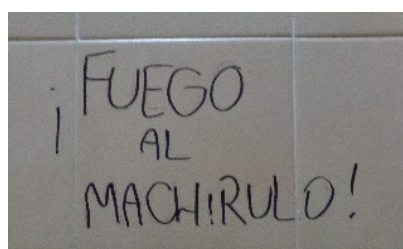 ¡FUEGO
AL
MACH!RULO!